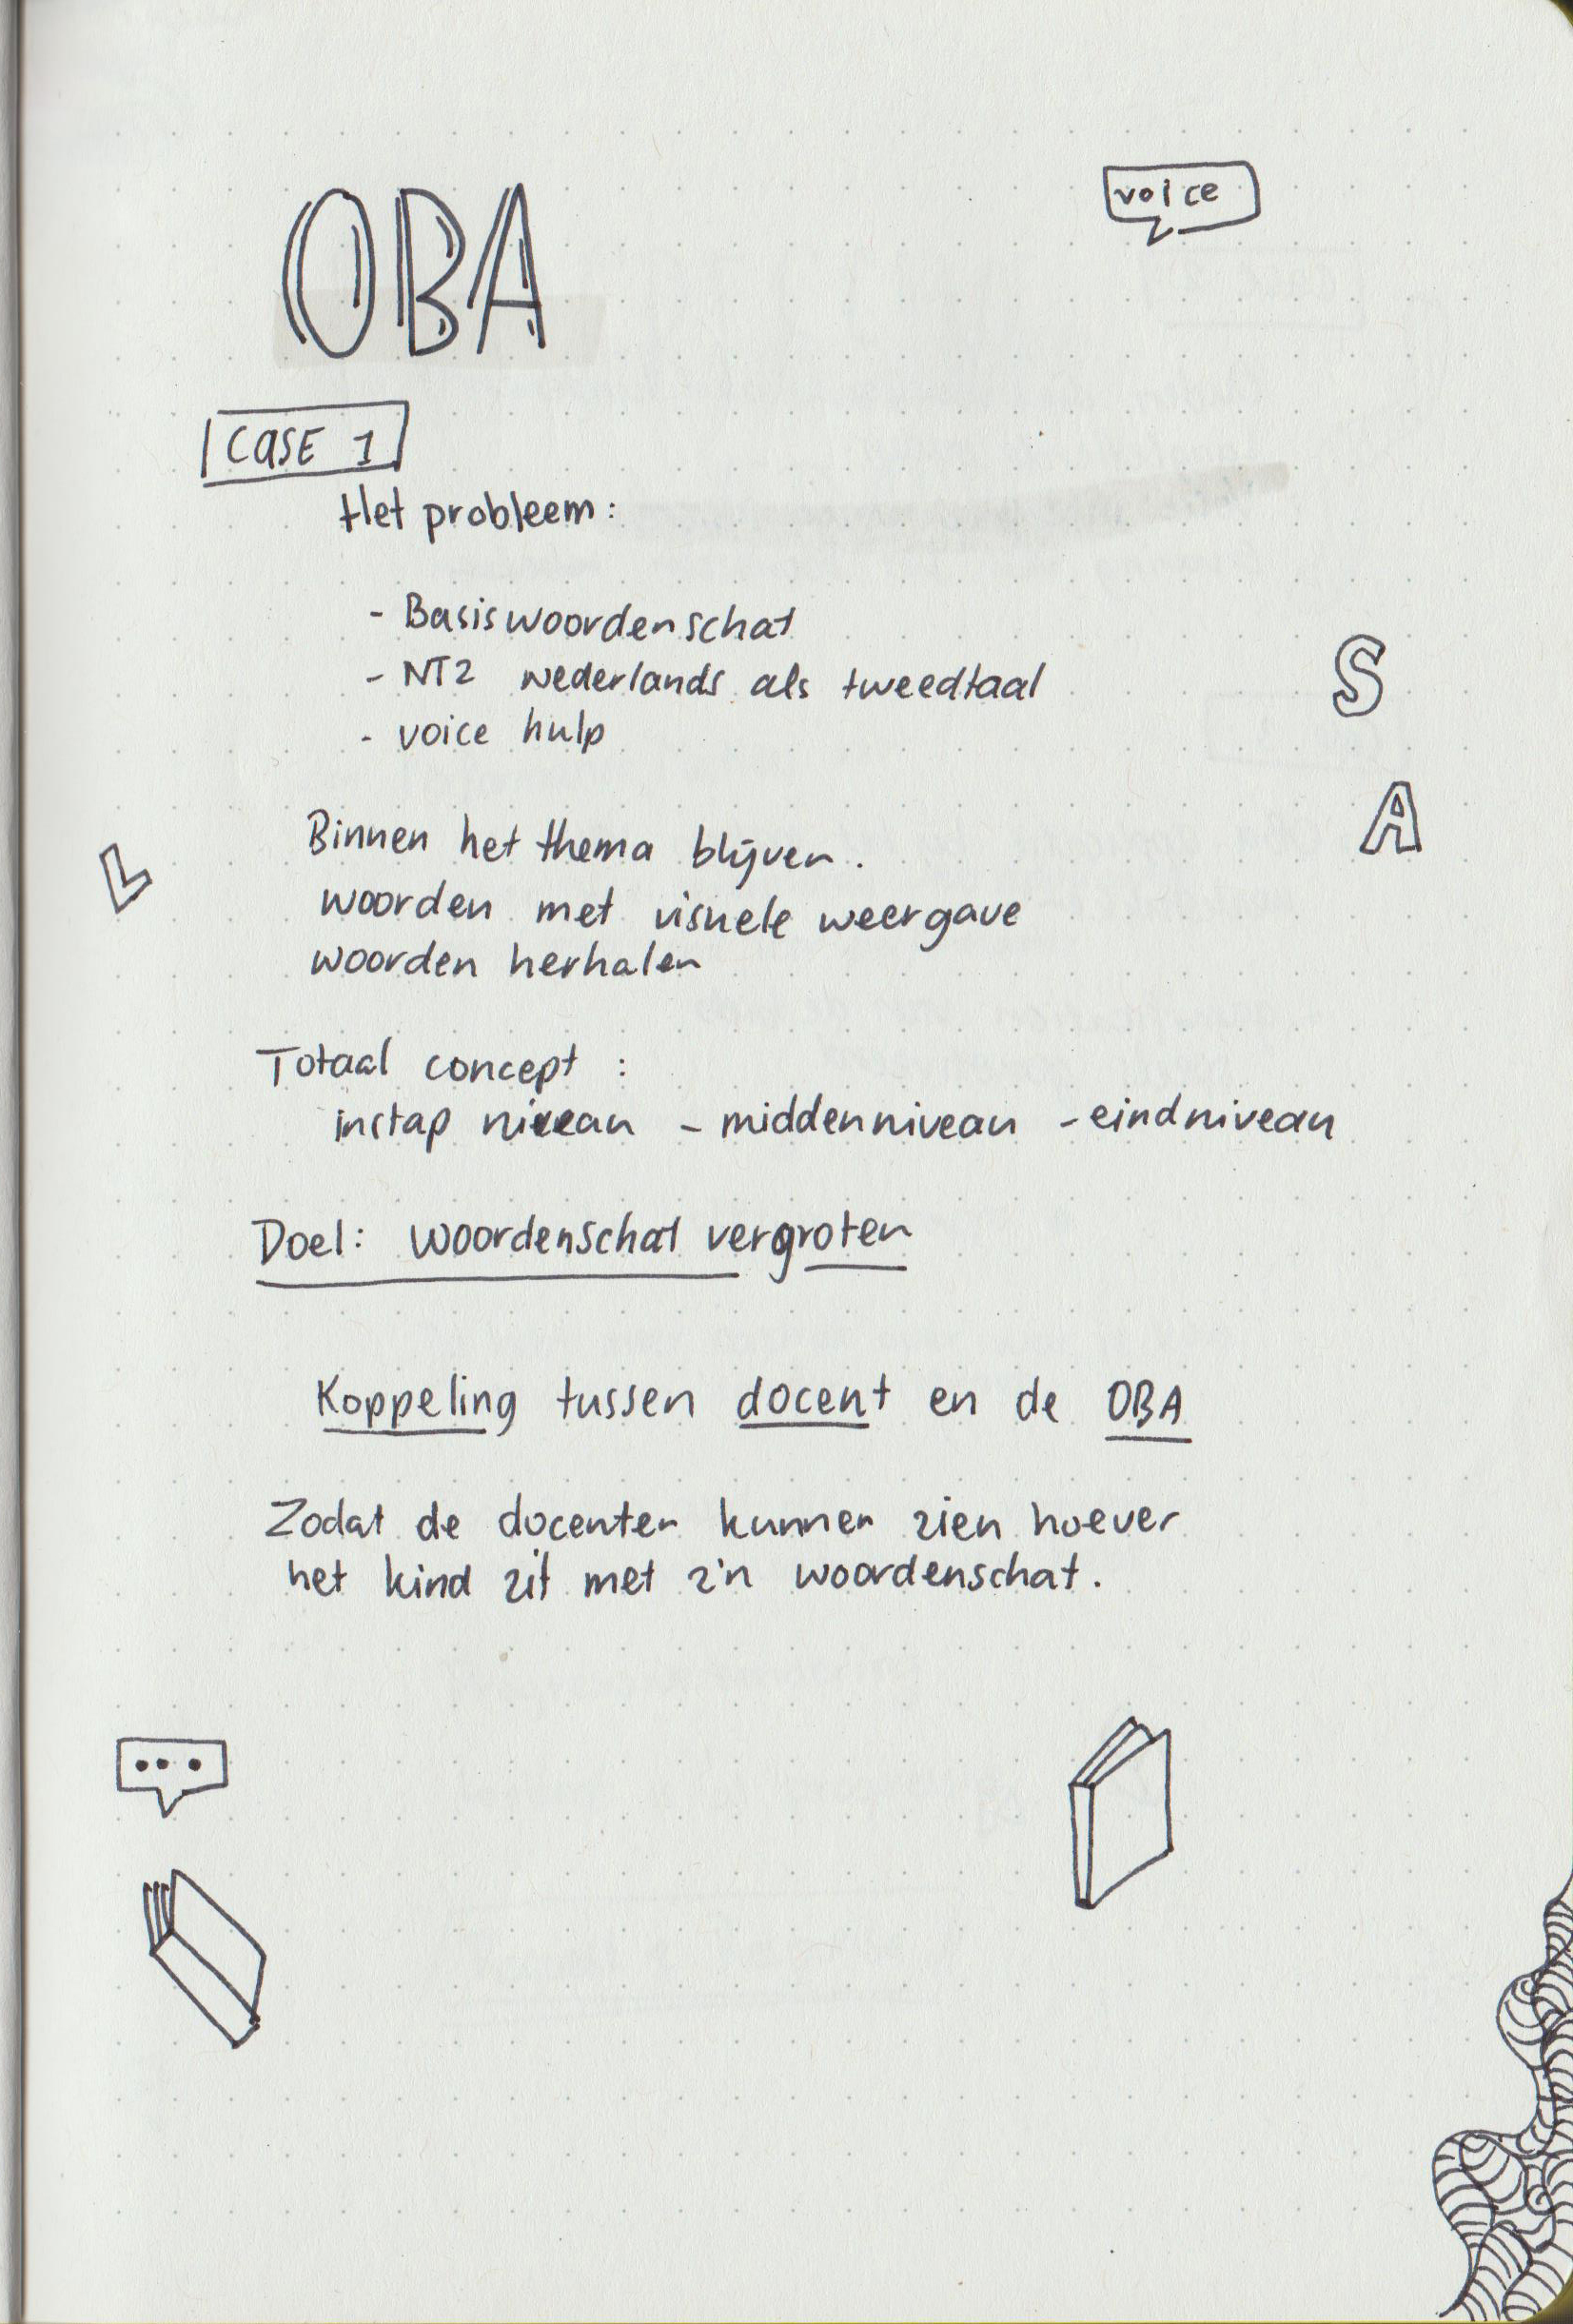 OBA
voice
CASE 1
Het probleem:
- Basiswoordenschat
- NT2 Nederlands als tweedtaal
- voice hulp
S
A
L
Binnen het thema blijven.
woorden met visuele weergave
woorden herhalen
Totaal concept :
instap niveau - middenniveau - eindniveau
Doel: woordenschat vergroten
Koppeling tussen docent en de OBA
Zodat de docenten kunnen zien hoever
het kind zit met z'n woordenschat.